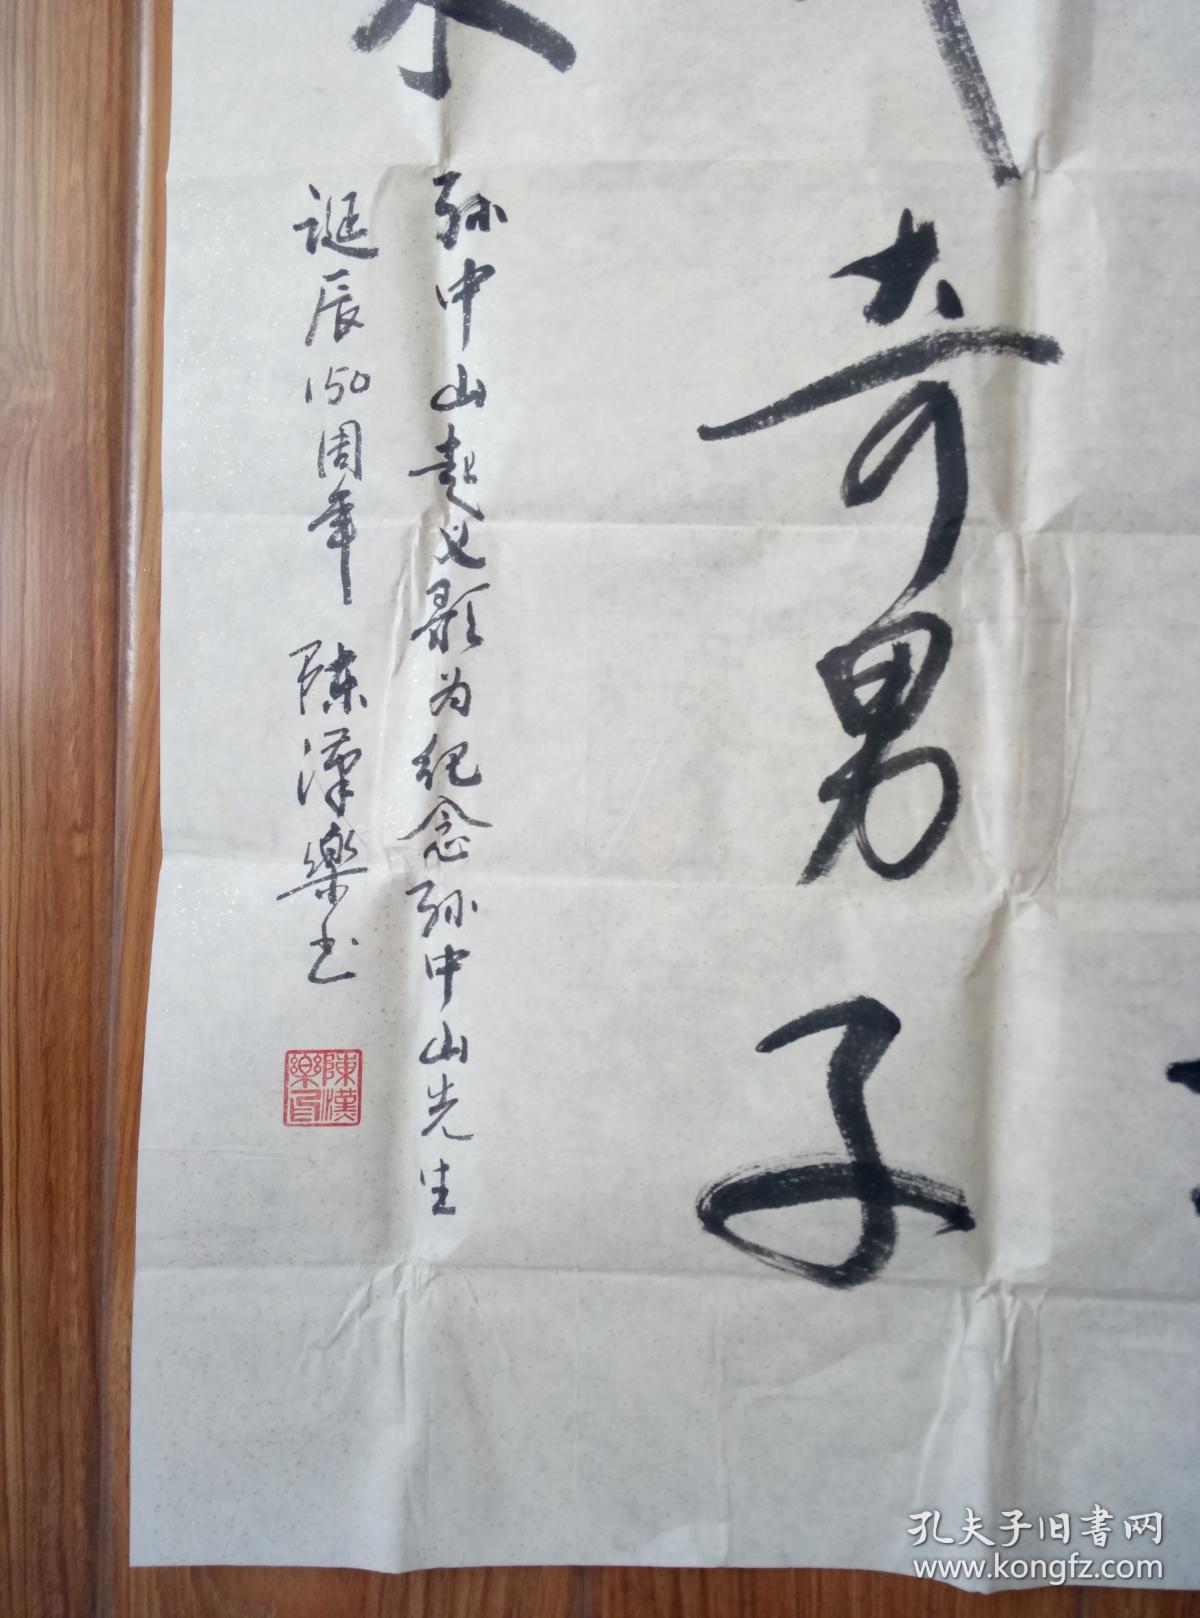 奇男子
孙中山起义歌为纪念孙中山先生
诞辰150周年 陈汉樂书
陳漢
樂印
孔夫子旧书网
www.kongfz.com